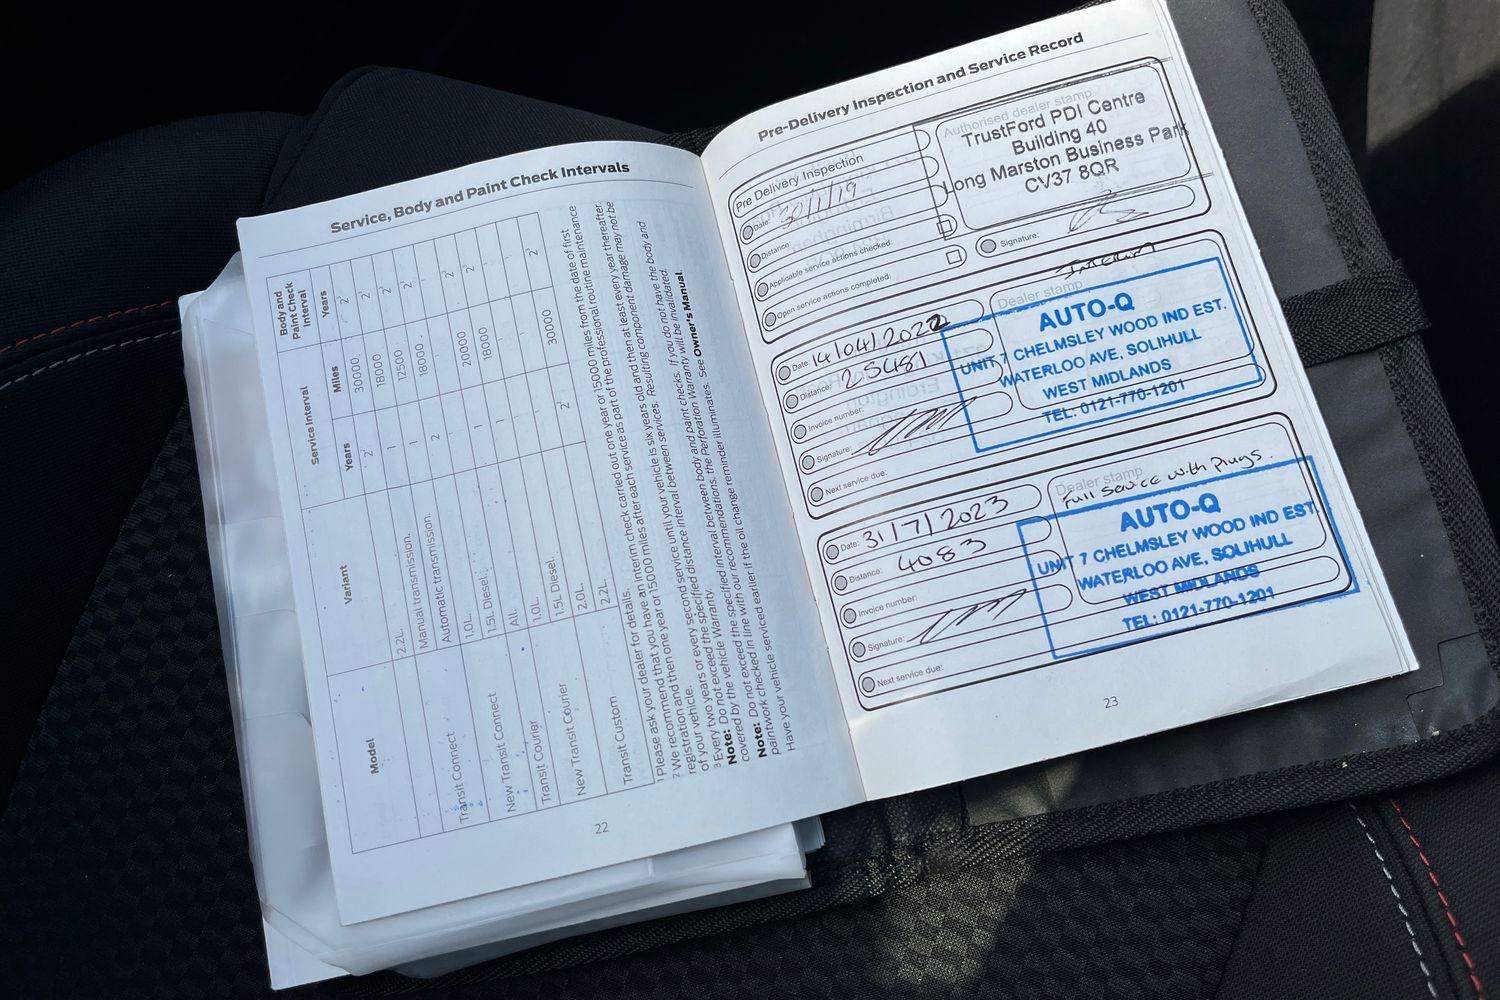 Service, Body and Paint Check Intervals
Model
Variant
Service Interval
Body and Paint Check Interval
Years
Miles
Years
2.2L.
2¹
30000
2³
Transit Connect
Manual transmission.
1
18000
2³
Automatic transmission.
1
12500
2³
New Transit Connect
1.0L.
2
18000
2³
1.5L Diesel.
Transit Courier
All.
1
20000
2³
New Transit Courier
1.0L.
1
18000
2³
1.5L Diesel.
Transit Custom
2.0L.
2¹
30000
2³
2.2L.
¹ Please ask your dealer for details.
² We recommend that you have an interim check carried out one year or 15000 miles from the date of first
registration and then one year or 15000 miles after each service until your vehicle is six years old and then at least every year thereafter.
of your vehicle.
³ Every two years or every second service
Note: Do not exceed the specified interval between body and paint checks. If you do not have the body and
covered by the vehicle Warranty.
Note: Do not exceed the specified distance interval between services. Resulting component damage may not be
paintwork checked in line with our recommendations, the Perforation Warranty will be invalidated.
Have your vehicle serviced earlier if the oil change reminder illuminates. See Owner's Manual.
22
Pre-Delivery Inspection and Service Record
Pre Delivery Inspection
Date:
Distance:
Applicable service actions checked:
Open service actions completed:
Authorised dealer stamp
TrustFord PDI Centre
Building 40
Long Marston Business Park
CV37 8QR
Signature:
Date: 14/04/2022
Distance: 25481
Invoice number:
Signature:
Next service due:
Interim
Dealer stamp
AUTO-Q
UNIT 7 CHELMSLEY WOOD IND EST.
WATERLOO AVE, SOLIHULL
WEST MIDLANDS
TEL: 0121-770-1201
Date: 31/7/2023
Distance: 4083
Invoice number:
Signature:
Next service due:
Dealer stamp
Full Service with Plugs.
AUTO-Q
UNIT 7 CHELMSLEY WOOD IND EST.
WATERLOO AVE, SOLIHULL
WEST MIDLANDS
TEL: 0121-770-1201
23